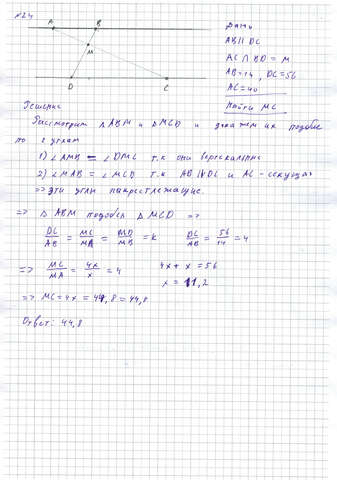 №24
A B
M
D C
Дано
AB || DC
AC ∩ BD = M
AB = 14, DC = 56
AC = 40
Найти MC
Решение
Рассмотрим △ABM и △MCD и докажем их подобие
по 2 углам
1) ∠AMB = ∠DMC т.к они вертикальные
2) ∠MAB = ∠MCD т.к AB || DC и AC - секущая
=> эти углы накрестлежащие.
=> △ABM подобен △MCD =>
DC/AB = MC/MA = MD/MB = k DC/AB = 56/14 = 4
=> MC/MA = 4x/x = 4 4x + x = 56
x = 11,2
=> MC = 4x = 44,8 = 44,8
Ответ: 44,8